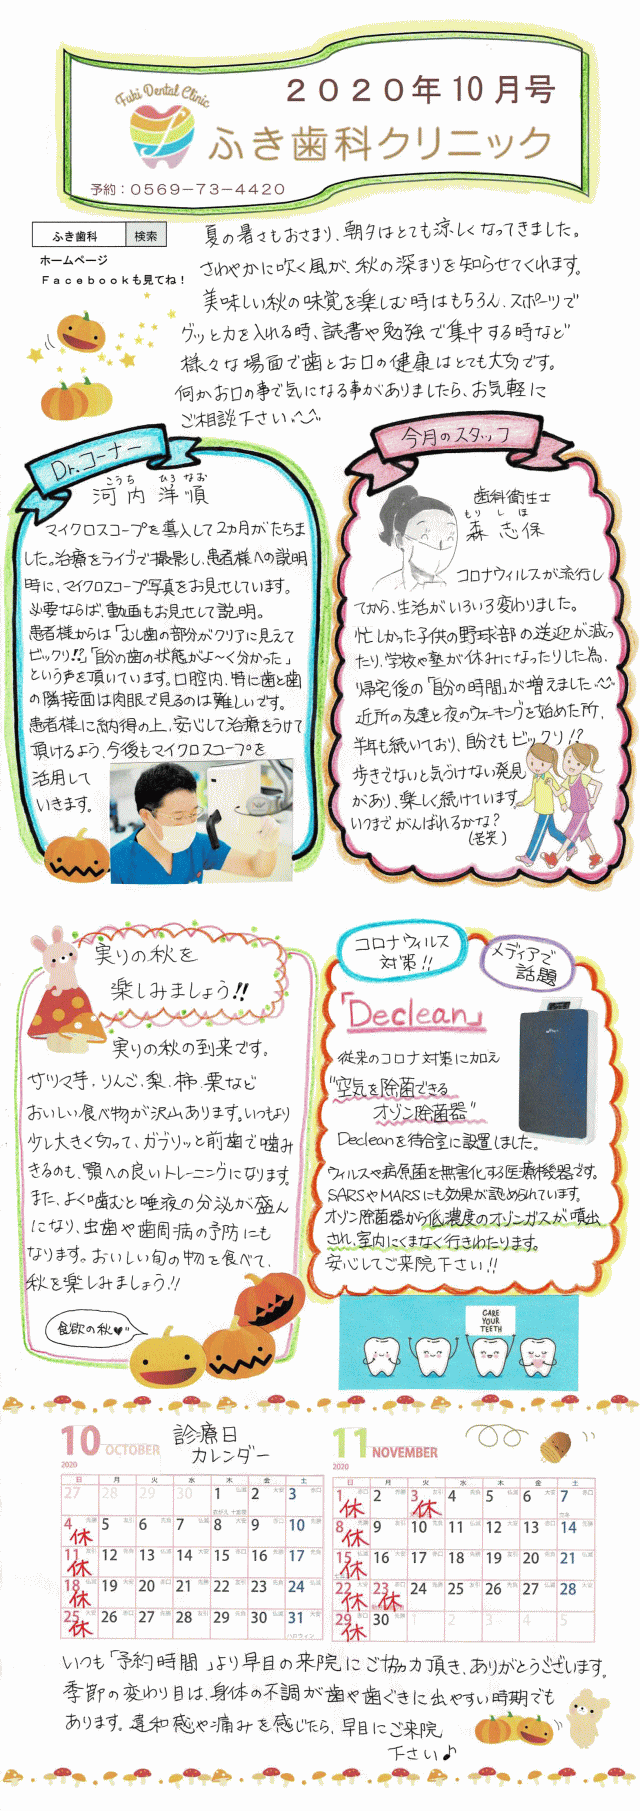 Fuki Dental Clinic
2020年10月号
ふき歯科クリニック
予約：0569-73-4420
ふき歯科 検索
ホームページ
Facebookも見てね！
夏の暑さもおさまり、朝夕はとても涼しくなってきました。
さわやかに吹く風が、秋の深まりを知らせてくれます。
美味しい秋の味覚を楽しむ時はもちろん、スポーツで
グッと力を入れる時、読書や勉強で集中する時など
様々な場面で歯とお口の健康はとても大切です。
何かお口の事で気になる事がありましたら、お気軽に
ご相談下さい。
Dr.コーナー
こうち ひろ なお
河内 洋順
マイクロスコープを導入して2ヵ月がたちま
した。治療をライブで撮影し、患者様への説明
時に、マイクロスコープ写真をお見せしています。
必要ならば、動画もお見せして説明。
患者様からは「むし歯の部分がクリアに見えて
ビックリ!?」「自分の歯の状態がよ〜く分かった」
という声を頂いています。口腔内、特に歯と歯
の隣接面は肉眼で見るのは難しいです。
患者様に納得の上、安心して治療をうけて
頂けるよう、今後もマイクロスコープを
活用して
いきます。
今月のスタッフ
歯科衛生士
もり しほ
森 志保
コロナウィルスが流行し
てから、生活がいろいろ変わりました。
忙しかった子供の野球部の送迎が減っ
たり、学校や塾が休みになったりした為、
帰宅後の「自分の時間」が増えました。
近所の友達と夜のウォーキングを始めた所、
半年も続いており、自分でもビックリ!?
歩きでないと気づけない発見
があり、楽しく続けています。
いつまでがんばれるかな？
(苦笑)
実りの秋を
楽しみましょう!!
実りの秋の到来です。
サツマ芋、りんご、梨、柿、栗など
おいしい食べ物が沢山あります。いつもより
少し大きく切って、ガブリッと前歯で噛み
きるのも、顎への良いトレーニングになります。
また、よく噛むと唾液の分泌が盛ん
になり、虫歯や歯周病の予防にも
なります。おいしい旬の物を食べて、
秋を楽しみましょう!!
食欲の秋♥"
コロナウィルス
対策!!
メディアで
話題
「Declean」
従来のコロナ対策に加え
"空気を除菌できる
オゾン除菌器"
Decleanを待合室に設置しました。
ウィルスや病原菌を無害化する医療機器です。
SARSやMARSにも効果が認められています。
オゾン除菌器から低濃度のオゾンガスが噴出
され、室内にくまなく行きわたります。
安心してご来院下さい!!
CARE
YOUR
TEETH
診療日
カレンダー
10 OCTOBER
2020
日 月 火 水 木 金 土
27 28 29 30 1 2 3
4 休 5 6 7 8 9 10
11 休 12 13 14 15 16 17
18 休 19 20 21 22 23 24
25 休 26 27 28 29 30 31
ハロウィン
11 NOVEMBER
2020
日 月 火 水 木 金 土
1 休 2 3 休 4 5 6 7
8 休 9 10 11 12 13 14
15 休 16 17 18 19 20 21
22 休 23 休 24 25 26 27 28
29 休 30 1 2 3 4 5
いつも「予約時間」より早目の来院にご協力頂き、ありがとうございます。
季節の変わり目は、身体の不調が歯や歯ぐきに出やすい時期でも
あります。違和感や痛みを感じたら、早目にご来院
下さい♪